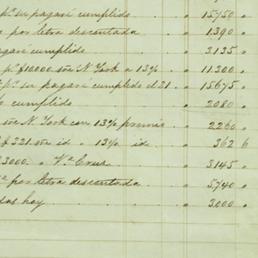 pr. su pagaré cumplido " 15750 "
por letra descontada " 1390 "
pagaré cumplido " 3135 "
pr. $10000 sre N. York a 13% " 11.300 "
pr. su pagaré cumplido el 21 " 15675 "
cumplido " 2080 "
sre N. York con 13% premio " 2260 "
$ 321 sre id " 13% id " 362 6
3000 " Va Cruz " 3145 "
por letra descontada " 5740 "
das hoy " 3000 "